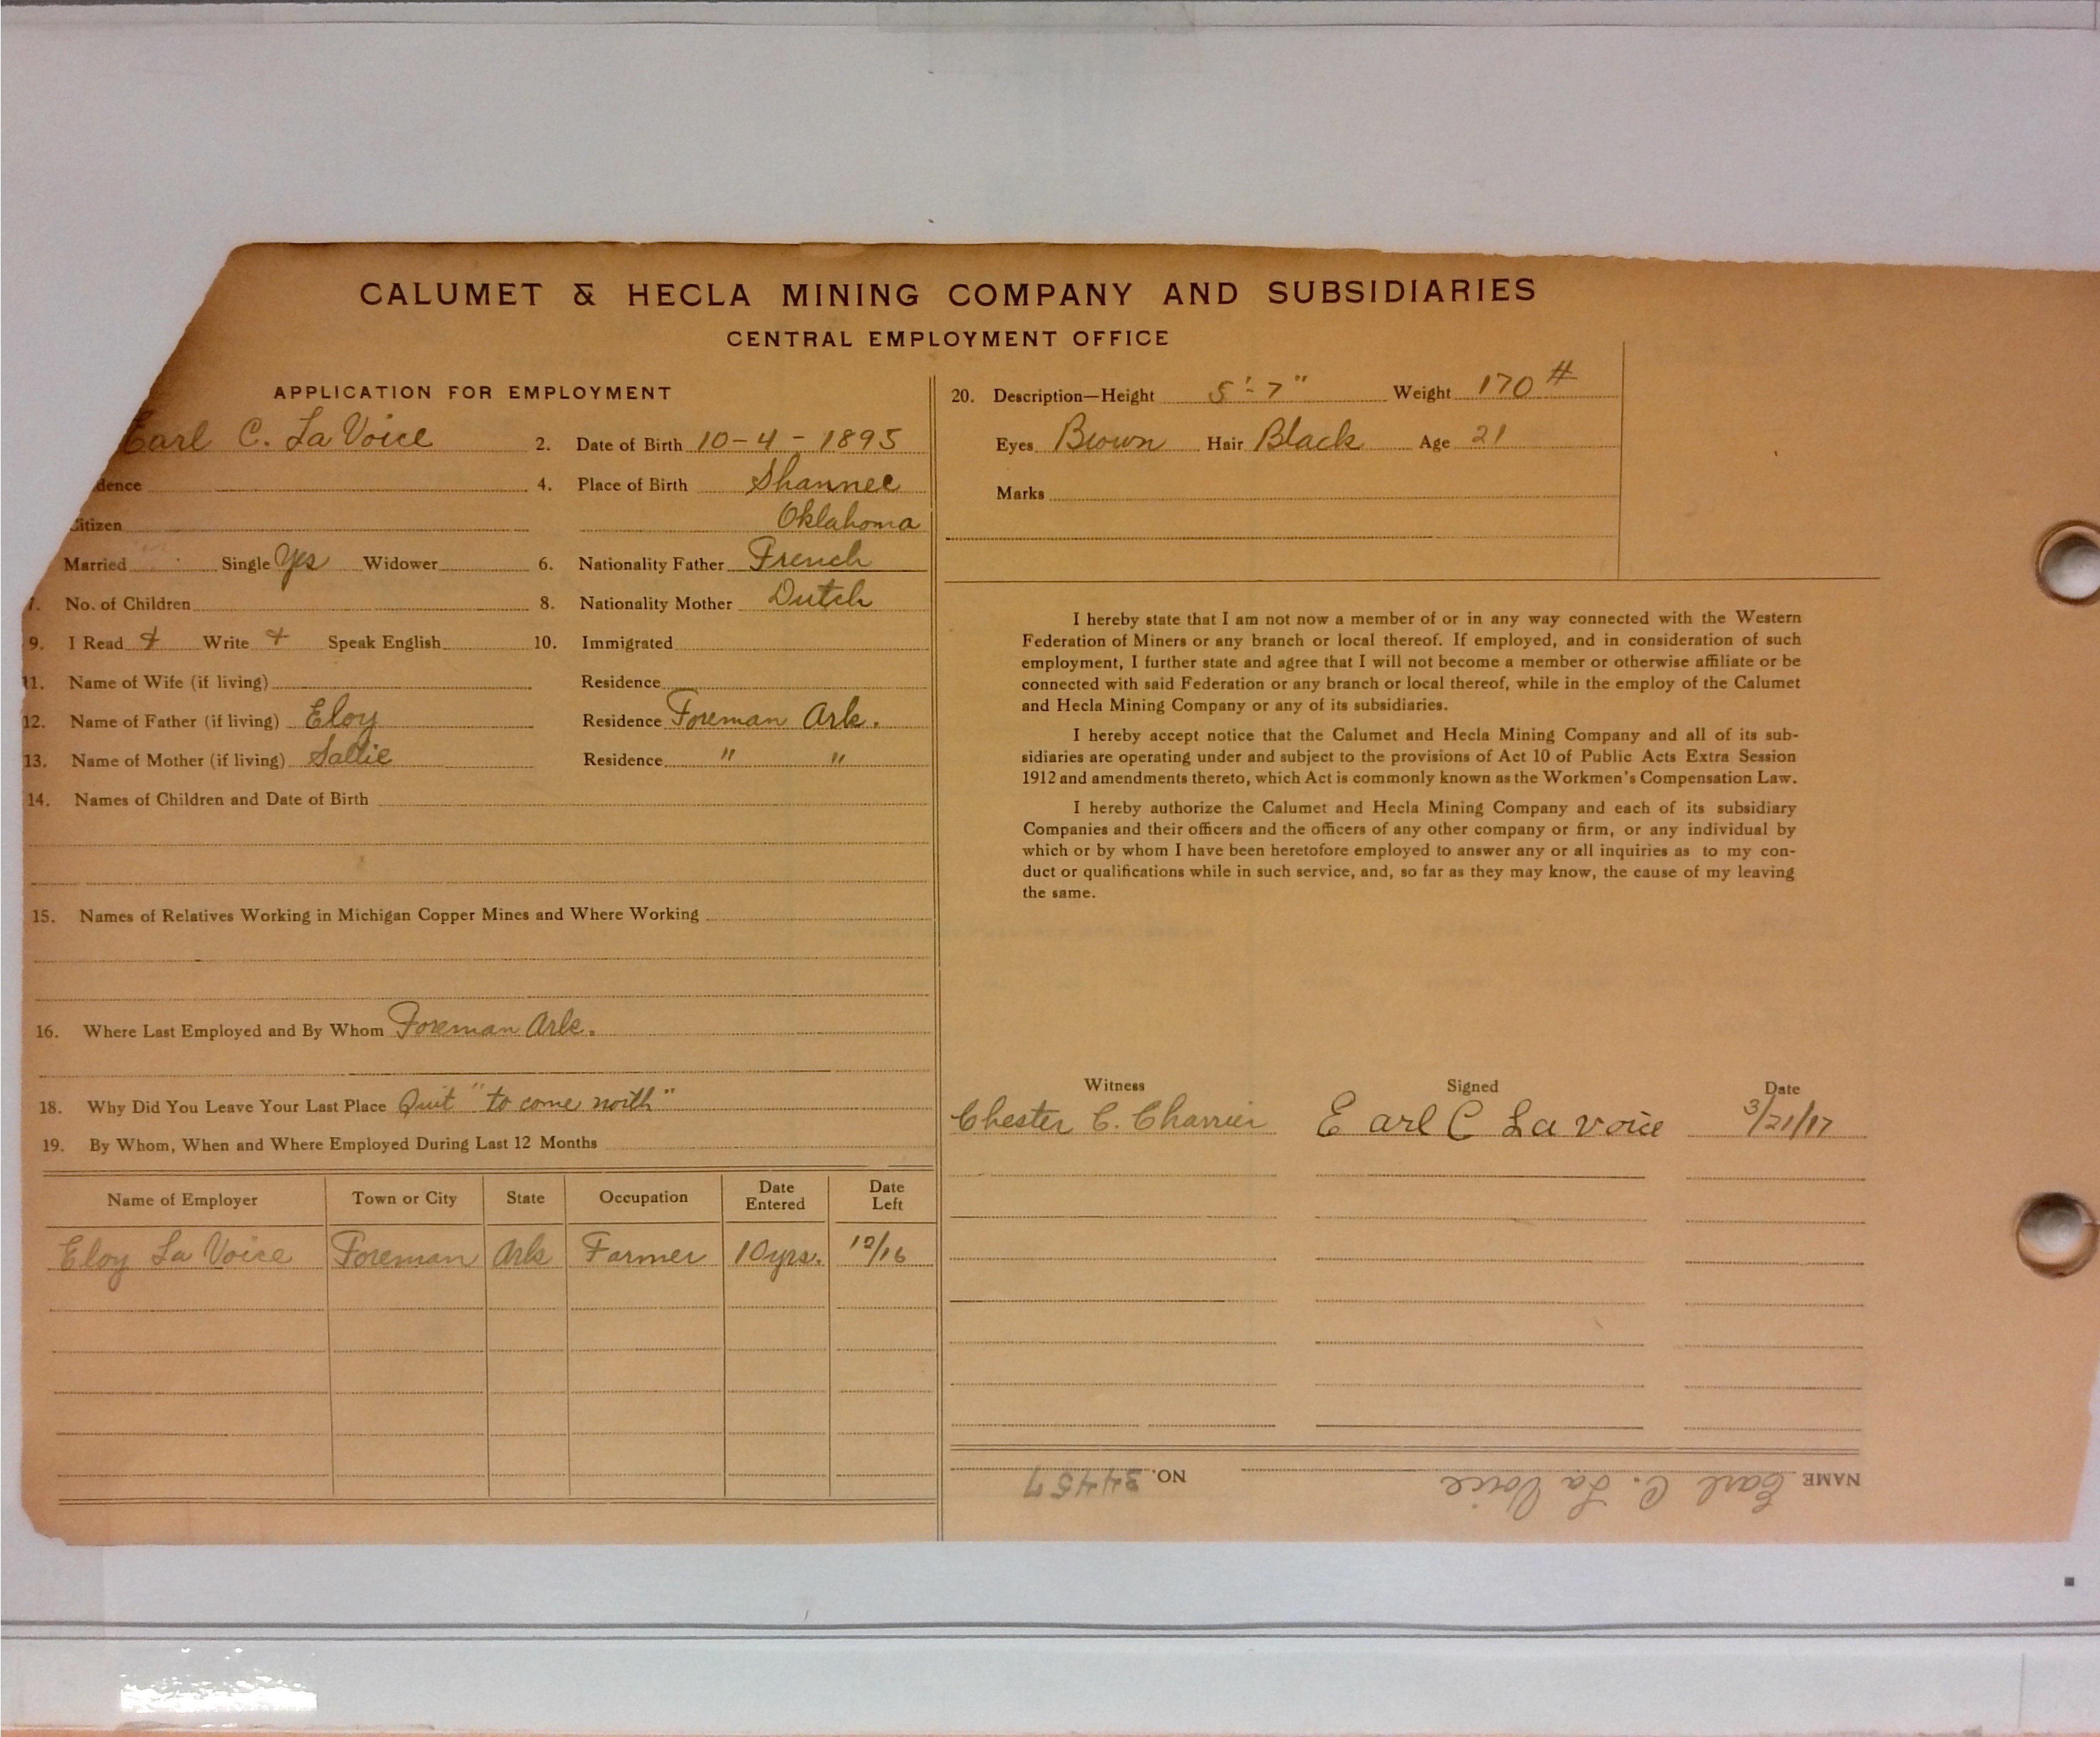 CALUMET & HECLA MINING COMPANY AND SUBSIDIARIES
CENTRAL EMPLOYMENT OFFICE
APPLICATION FOR EMPLOYMENT
Earl C. La Voice 2. Date of Birth 10-4-1895
dence 4. Place of Birth Shannee
Citizen Oklahoma
Married Single Yes Widower 6. Nationality Father French
7. No. of Children 8. Nationality Mother Dutch
9. I Read + Write + Speak English 10. Immigrated
11. Name of Wife (if living) Residence
12. Name of Father (if living) Eloy Residence Foreman Ark.
13. Name of Mother (if living) Sallie Residence " "
14. Names of Children and Date of Birth
15. Names of Relatives Working in Michigan Copper Mines and Where Working
16. Where Last Employed and By Whom Foreman Ark.
18. Why Did You Leave Your Last Place Quit "to come north"
19. By Whom, When and Where Employed During Last 12 Months
Name of Employer Town or City State Occupation Date Entered Date Left
Eloy La Voice Foreman Ark Farmer 10 yrs. 12/16
20. Description—Height 5'-7" Weight 170 #
Eyes Brown Hair Black Age 21
Marks
I hereby state that I am not now a member of or in any way connected with the Western
Federation of Miners or any branch or local thereof. If employed, and in consideration of such
employment, I further state and agree that I will not become a member or otherwise affiliate or be
connected with said Federation or any branch or local thereof, while in the employ of the Calumet
and Hecla Mining Company or any of its subsidiaries.
I hereby accept notice that the Calumet and Hecla Mining Company and all of its sub-
sidiaries are operating under and subject to the provisions of Act 10 of Public Acts Extra Session
1912 and amendments thereto, which Act is commonly known as the Workmen's Compensation Law.
I hereby authorize the Calumet and Hecla Mining Company and each of its subsidiary
Companies and their officers and the officers of any other company or firm, or any individual by
which or by whom I have been heretofore employed to answer any or all inquiries as to my con-
duct or qualifications while in such service, and, so far as they may know, the cause of my leaving
the same.
Witness Signed Date
Chester C. Charrier Earl C La voice 3/21/17
NAME Earl C. La Voice NO. 34457